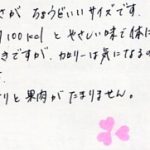 さが ちょうどいいサイズです.
約100kcalと やさしい味で体に
きですが、カロリーは気になるの
りと果肉が たまりません。